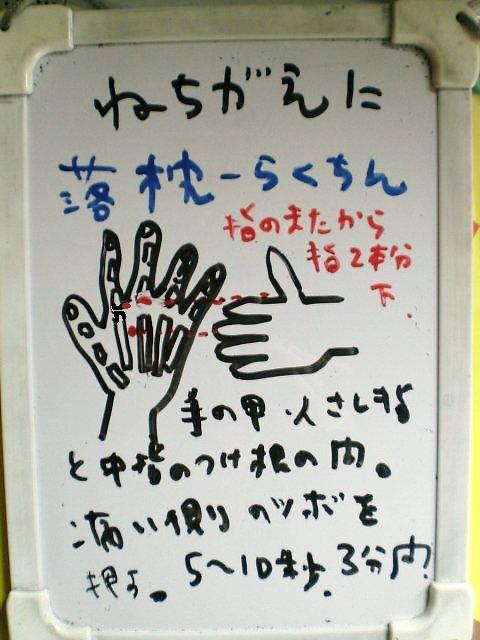 ねちがえに
落枕ーらくちん
指のまたから
指2本分
下.
手の甲・人さし指
と中指のつけ根の内。
痛い側のツボを
押す。5〜10秒.3分内!